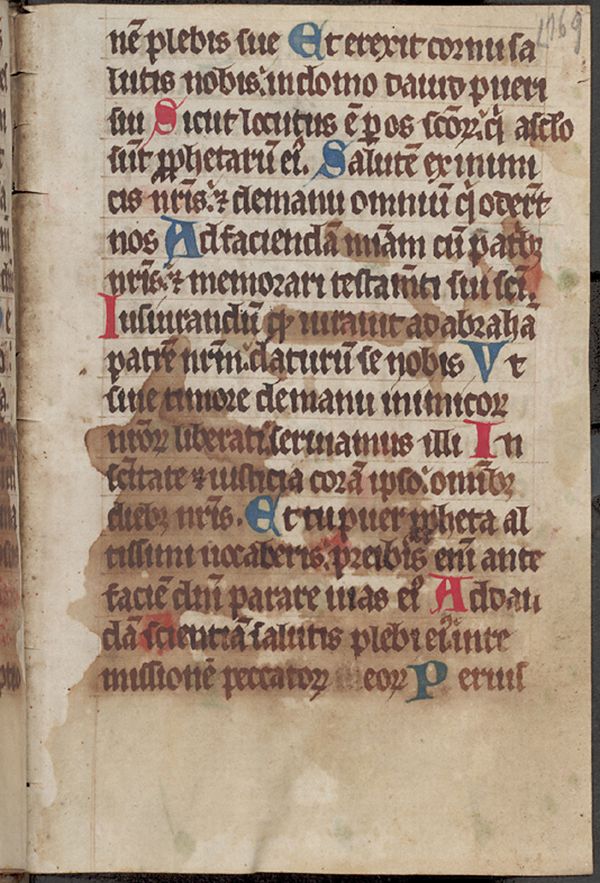 169
nē plebis sue Et erexit cornu sa
lutis nobis: in domo dauid pueri
sui Sicut locutus ē p os scōꝝ: q̄ a sclo
sūt ꝓphetarū ei᾽. Salutē ex inimi
cis nr̄is: ⁊ de manu omniū q̄ oderūt
nos Ad faciendā mīam cū patribꝫ
nr̄is: ⁊ memorari testamīti sui sc̄i.
Iusiurandū qď iurauit ad abrahā
patrē nr̄m: daturū se nobis Vt
sine timore de manu inimicoꝝ
nr̄oꝝ liberati: seruiamus illi In
sc̄itate ⁊ iusticia corā ipso: omībꝫ
diebꝫ nr̄is. Et tu puer ꝓpheta al
tissimi uocaberis: preibis enī ante
faciē dn̄i parare uias ei᾽ Ad dan
dā scientiā salutis plebi ei᾽: in re
missionē peccatoꝝ eoꝝ Per uis